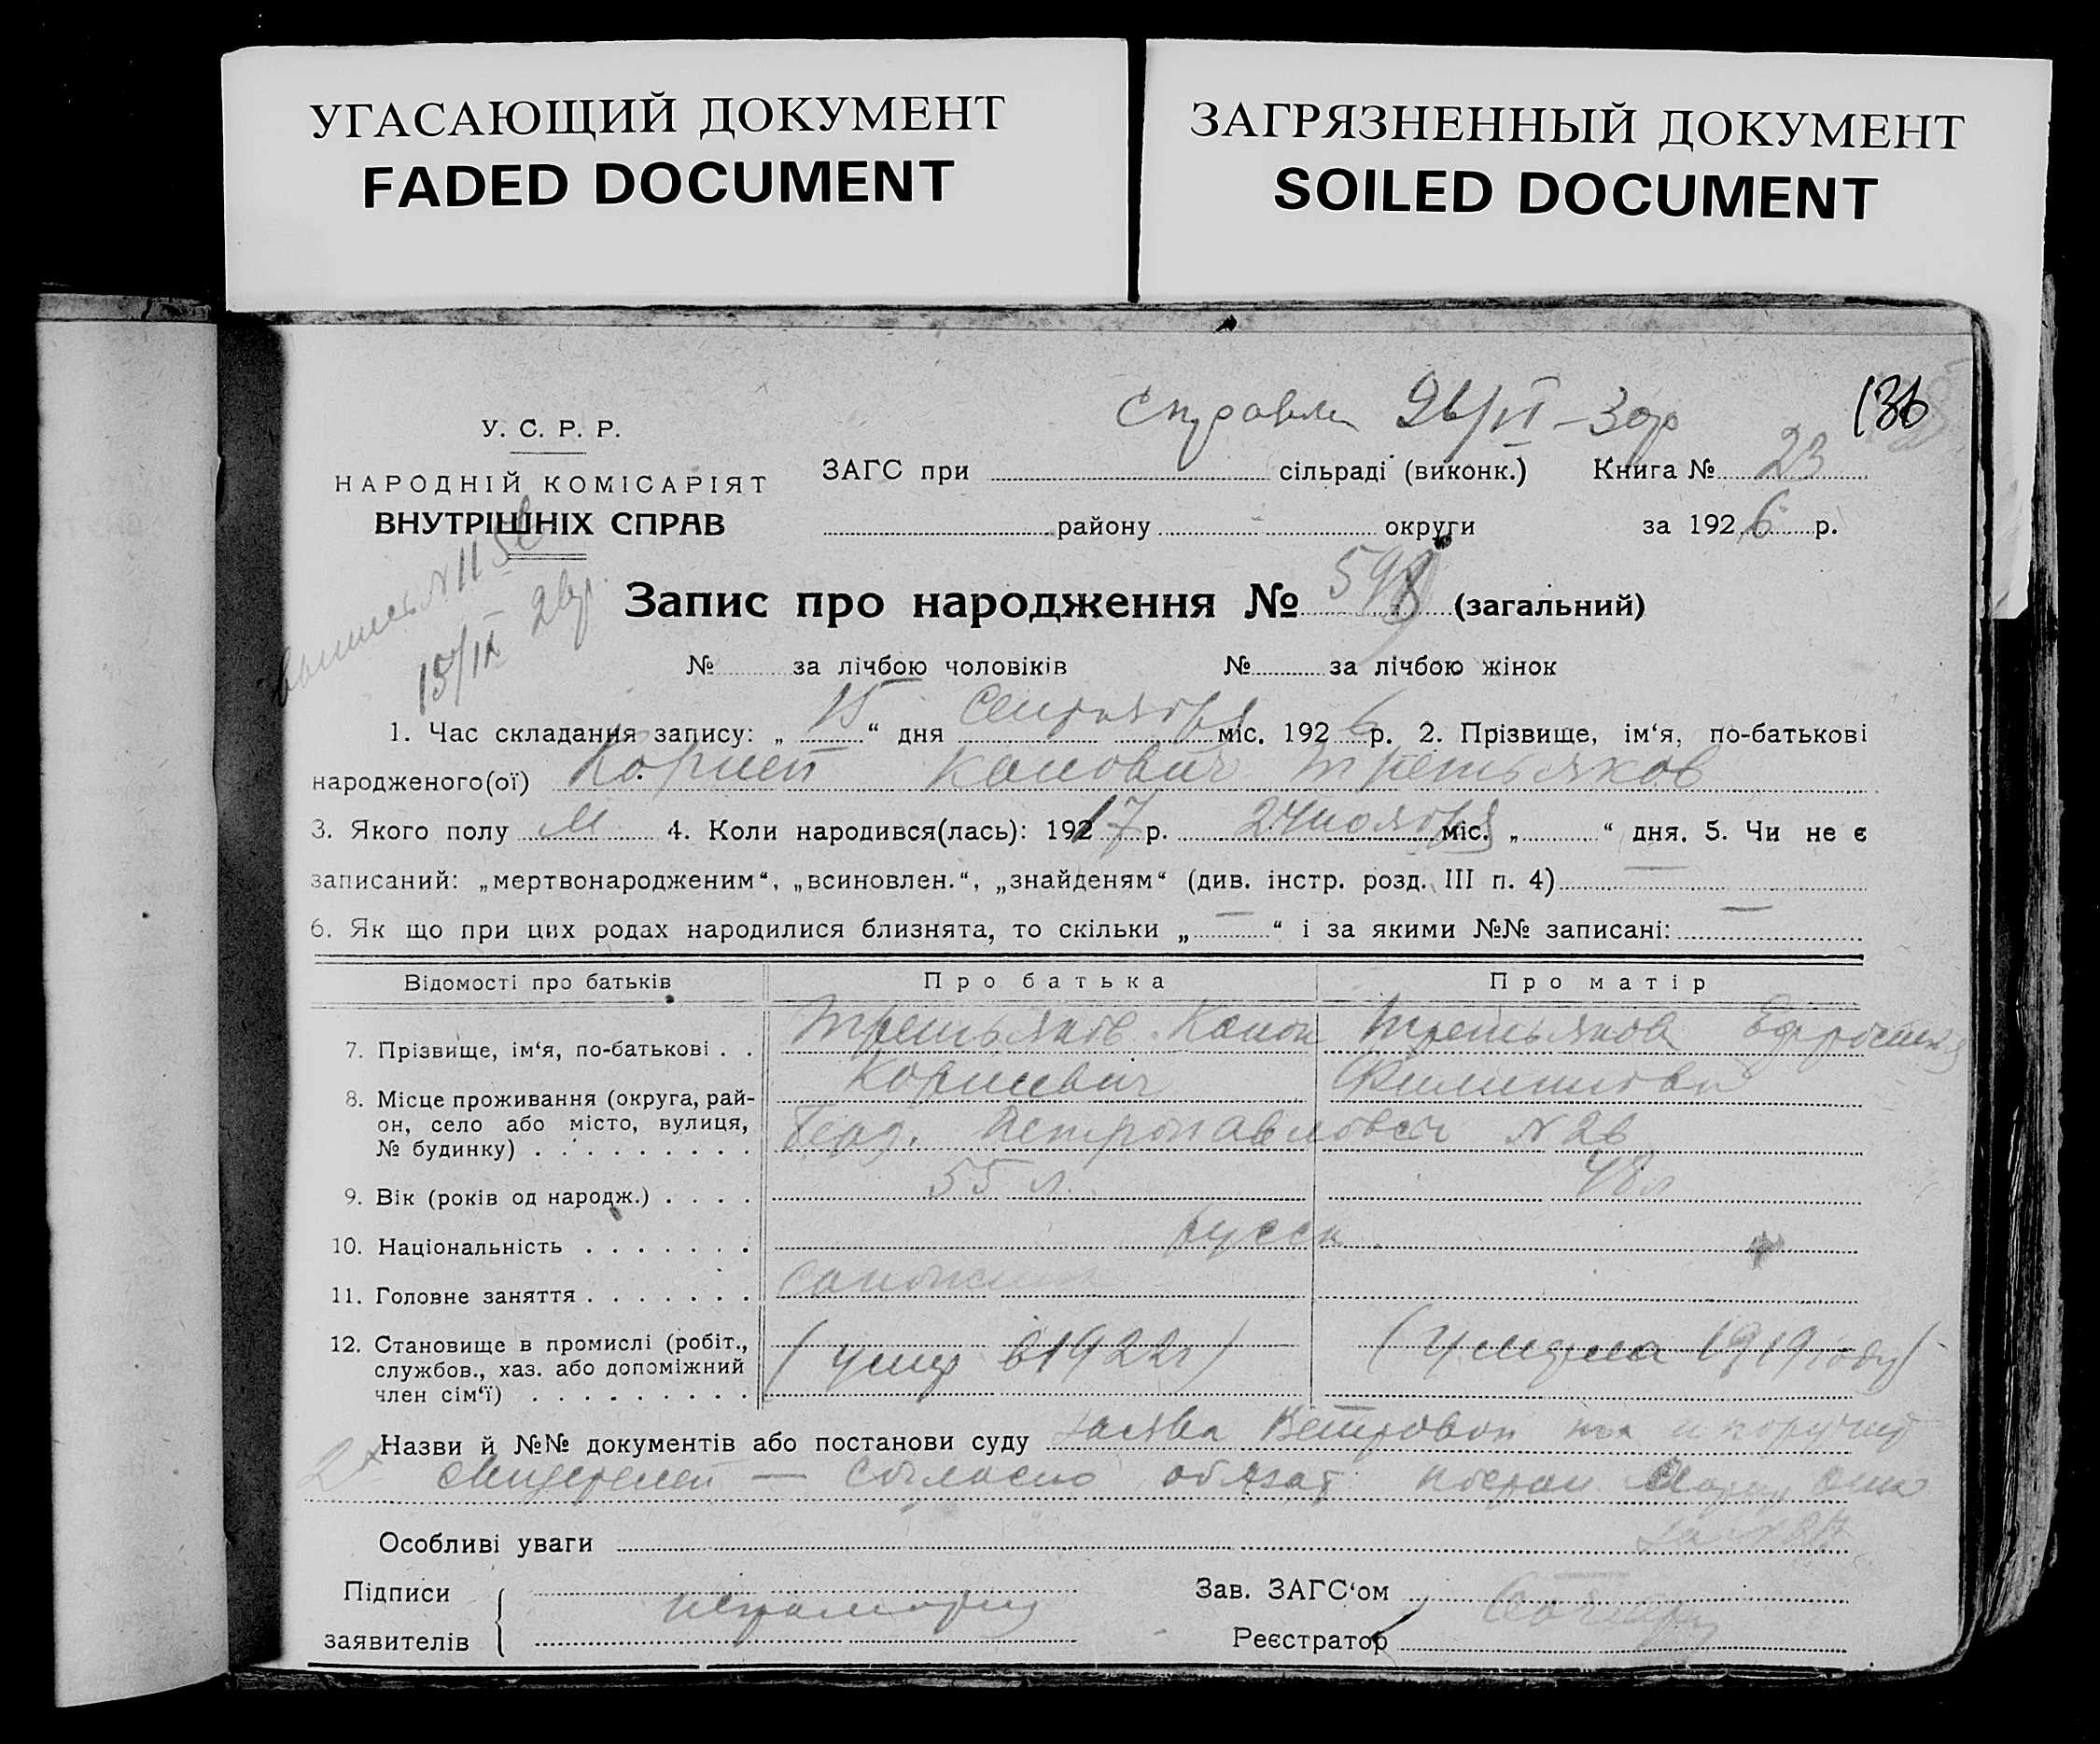 УГАСАЮЩИЙ ДОКУМЕНТ
FADED DOCUMENT
ЗАГРЯЗНЕННЫЙ ДОКУМЕНТ
SOILED DOCUMENT
136
У. С. Р. Р.
НАРОДНІЙ КОМІСАРІЯТ
ВНУТРІШНІХ СПРАВ
15/IX 26р.
ЗАГС при сільраді (виконк.) Книга № 23
району округи за 1926 р.
Запис про народження № (загальний)
№ за лічбою чоловіків № за лічбою жінок
1. Час складання запису: „ 15 “ дня Сентября міс. 1926 р. 2. Прізвище, ім‘я, по-батькові
народженого(ої) Корней Канович Третьяков
3. Якого полу М 4. Коли народився(лась): 1917 р. 24 ноября міс. „ “ дня. 5. Чи не є
записаний: „мертвонародженим“, „всиновлен.“, „знайденям“ (див. інстр. розд. III п. 4) —
6. Як що при цих родах народилися близнята, то скільки „ — “ і за якими №№ записані: —
Відомості про батьків Про батька Про матір
7. Прізвище, ім‘я, по-батькові . . Третьяков Канон Третьякова Ефросиния
Корнеевич
8. Місце проживання (округа, рай-
он, село або місто, вулиця,
№ будинку) . . . . . . . . . N 26
9. Вік (років од народж.) . . . . 55 л. 48 л
10. Національність . . . . . . . русск
11. Головне заняття . . . . . . . сапожник
12. Становище в промислі (робіт.,
службов., хаз. або допоміжний
член сім‘ї) . . . . . . . . . (умер в 1922г) (Умерла 1919 году)
Назви й №№ документів або постанови суду Петровой
2х свидетелей — согласно
Особливі уваги
Підписи
заявителів неграмотн
Зав. ЗАГС‘ом
Реєстратор